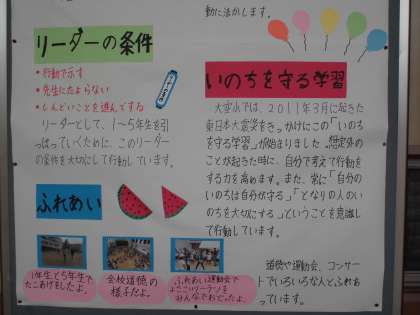 動に活かします。
リーダーの条件
・行動で示す
・先生にたよらない
・しんどいことを進んでする
リーダーとして、1〜5年生を引
っぱっていくために、このリーダー
の条件を大切にして行動しています。
いのちを守る学習
大宮小では、2011年3月に起きた
東日本大震災をきっかけにこの「いのち
を守る学習」が始まりました。想定外の
ことが起きた時に、自分で考えて行動を
する力を高めます。また、常に「自分の
いのちは自分が守る」「となりの人のい
のちを大切にする」ということを意識し
て行動しています。
ふれあい
1年生と5年生で
たこあげをしたよ。
全校道徳の
様子だよ。
ふれあい運動会で
よさこいソーランを
みんなでおどったよ。
道徳や運動会、コンサー
トでいろいろな人とふれあ
っています。